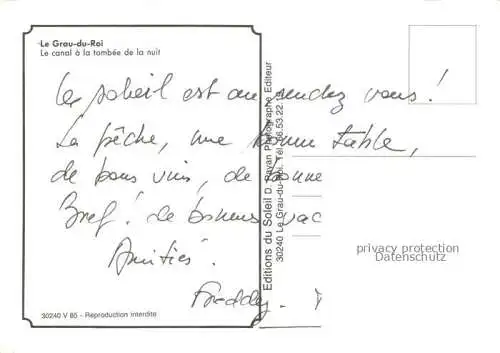 Le Grau-du-Roi
Le canal à la tombée de la nuit
Le soleil est au rendez vous !
La pêche, une bonne table,
de bons vins, de bonne
Bref ! de bonnes vac
Amitiés.
Freddy.
30240 V 85 - Reproduction interdite
Editions du Soleil D. Bayan Photographe Editeur
30240 Le Grau-du-Roi. Tél. 66.53.22.
privacy protection
Datenschutz